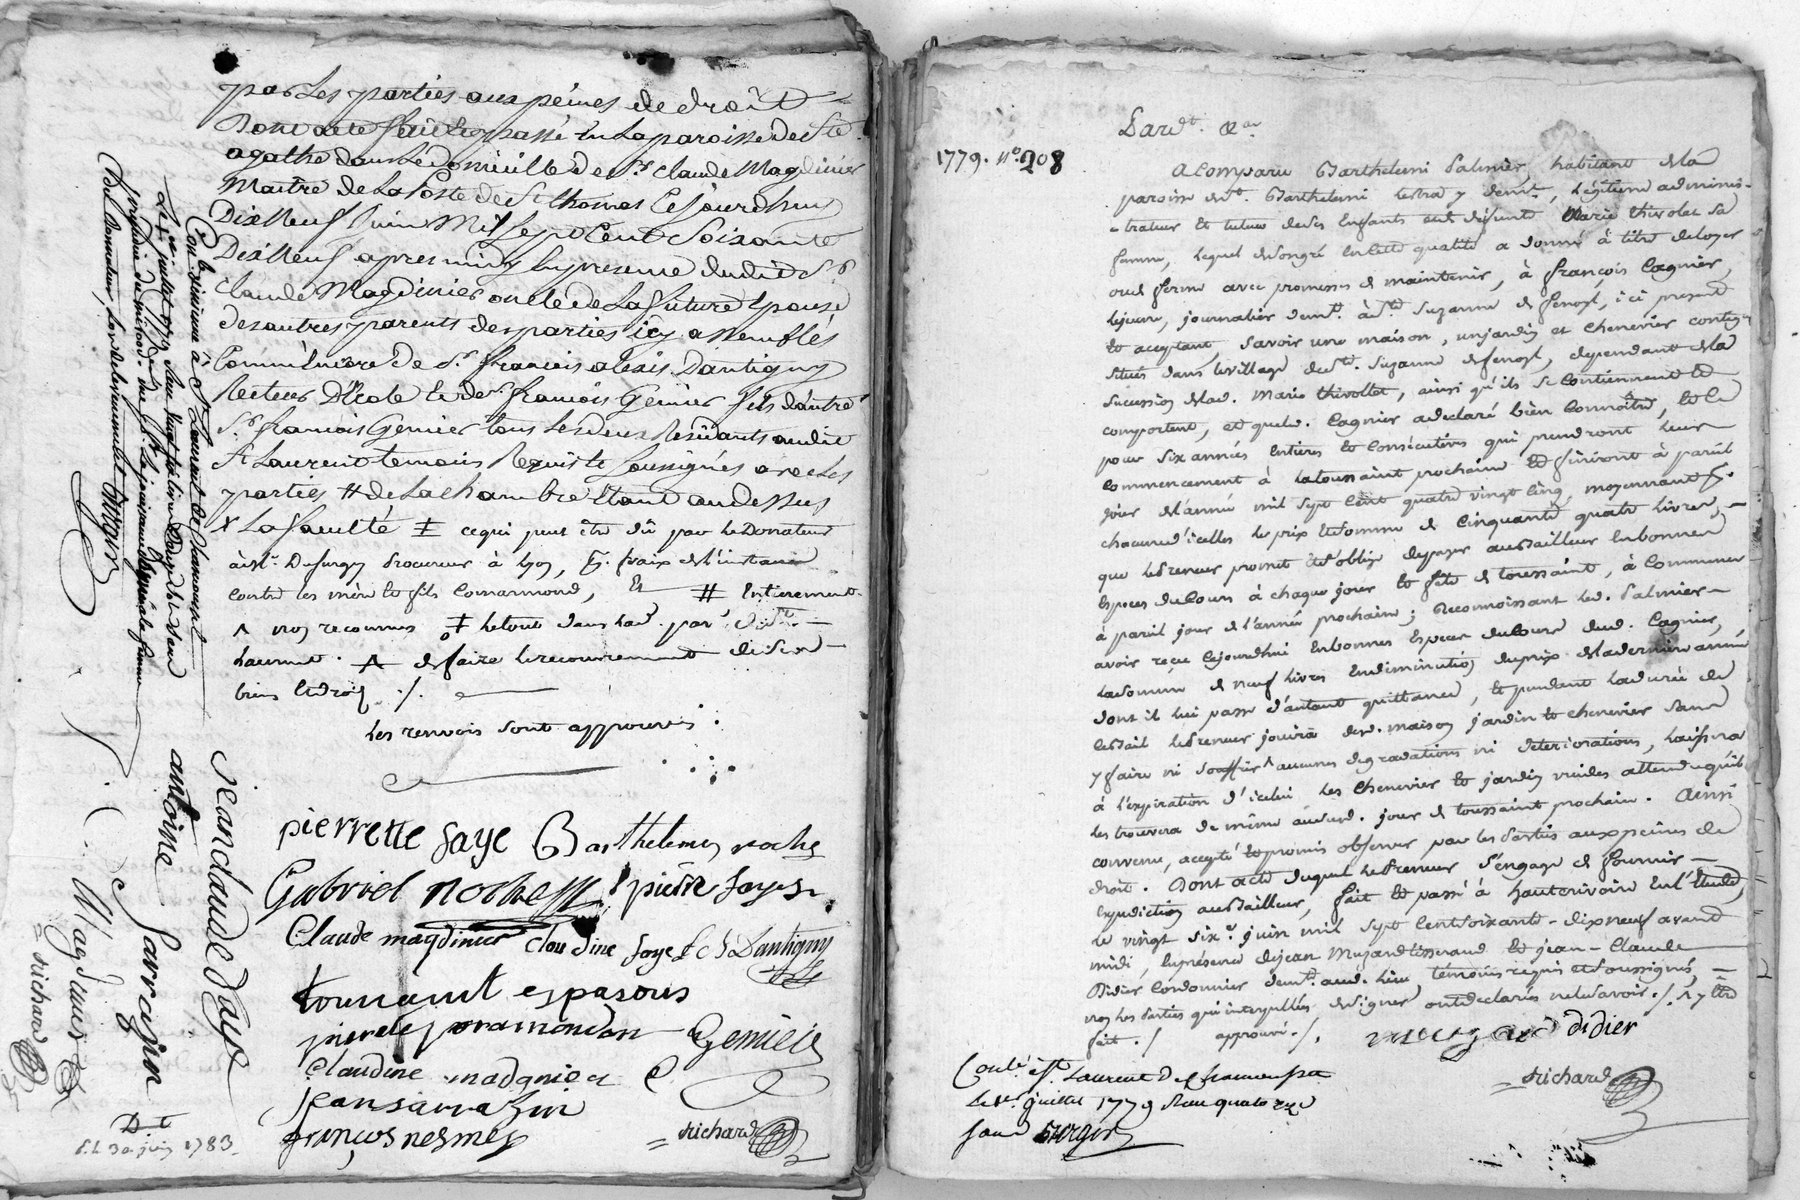 par Les parties aux peines de droit
Dont acte fait et passé en La paroisse de Ste
agathe dans Le domicille de sr. claude Magdinier
Maître de La Poste de St thomas Ce jourdhuy
Dixneuf Juin Mil Sept Cent Soixante
Dixneuf apres midy En presence dudit Sr
claude Magdinier oncle de La future Epouse
des autres parents des parties icy assemblés
de Sr. francois alexis Dantigny
Recteur D'Ecole et de sr. francois Genier fils dautre
Sr. francois Genier tous Les deux Residants audit
St Laurent temoins Requis et soussignés avec Les
parties # de La chambre Etant au dessus
x La faculté ‡ ce qui peut être dû par le Donateur
procureur à lyon, frais de l'instance
contre les mère et fils Comarmond, Et # Entierement
^ nos reconnues ‡ le tout dans lad. par. de St.
Laurent. A de faire le recouvrement de ses
biens et droits ./.
Les renvois sont approuvés.
pierrette faye Barthelemy roche
Gabriel roche pierre faye
Claude magdinier claudine faye f. a. Dantigny
tournant
Genier
Claudine madgnier
jean sarrazin
françois nesmes
Richard
Con.lé à St. Laurent de Chamousset
Le 1er juillet 1779
jean claude faye
antoine Sarrazin
Magdinier
Richard
D. t
E. L 30 juin 1783
Lard. &ar
1779. N°. 208
A Comparu Barthelemi Palmier, habitant de la
paroisse de St. Barthelemi Lestra y demt., Légitime adminis-
trateur et tuteur de ses Enfants et de défunte Marie thivolet sa
femme, Lequel de son gré en lade qualité a donné à titre de loyer
ou de ferme avec promesses de maintenir, à françois Cognier,
Lejeune, journalier demt. à Ste Suzanne de fenoyl, ici présent
et acceptant, Savoir une maison, un jardin et chenevier contigus
situés dans le village de Ste. Suzanne de fenoyl, dépendant de la
sucession de lad. Marie thivollet, ainsi qu'ils se contiennent et
comportent, et que led. Cognier a declaré bien connoître, et ce
pour six années entieres et consécutives qui prendront leur
commencement à la toussaint prochaine et finiront à pareil
jour de l'année mil sept cent quatre vingt cinq, moyennant p.
chacune d'icelles le prix et somme de cinquante quatre livres, —
que le Preneur promet et s'oblige de payer au Bailleur en bonnes
Especes du Cours à chaque jour et fête de toussaint, à commencer
à pareil jour de l'année prochaine; Reconnoissant led. Palmier —
avoir reçu cejourdhui en bonnes Especes du cours dud. Cognier,
la somme de neuf livres en diminution du prix de la derniere année
dont il lui passe d'autant quittance, et pendant la durée de
ce Bail le Preneur jouira des d. maison jardin et chenevier sans
y faire ni souffrir ^ aucunes dégradations ni deteriorations, laissera
à l'expiration d'icelui les chenevier et jardin vuides attendu qu'il
les trouvera de même aud. jour de toussaint prochain. Ainsi
convenu, accepté et promis observer par les Parties aux peines de
droit. Dont acte duquel le Preneur s'engage de fournir —
Expedition au Bailleur, fait et passé à hauterivoire en l'Etude,
le vingt six.e juin mil sept cent soixante-dix neuf avant
midi, En présence de jean Muzard tisserand et jean-Claude
Didier Cordonnier demt. aud. lieu témoins requis et soussignés, —
non les Parties qui interpellées de signer ont déclaré ne le savoir. /. ^ y être
fait. / approuvé. /.
muzard didier
Richard
Con.lé à St. Laurent de Chamousset
Le 1er juillet 1779 Reçu quatorze
sous